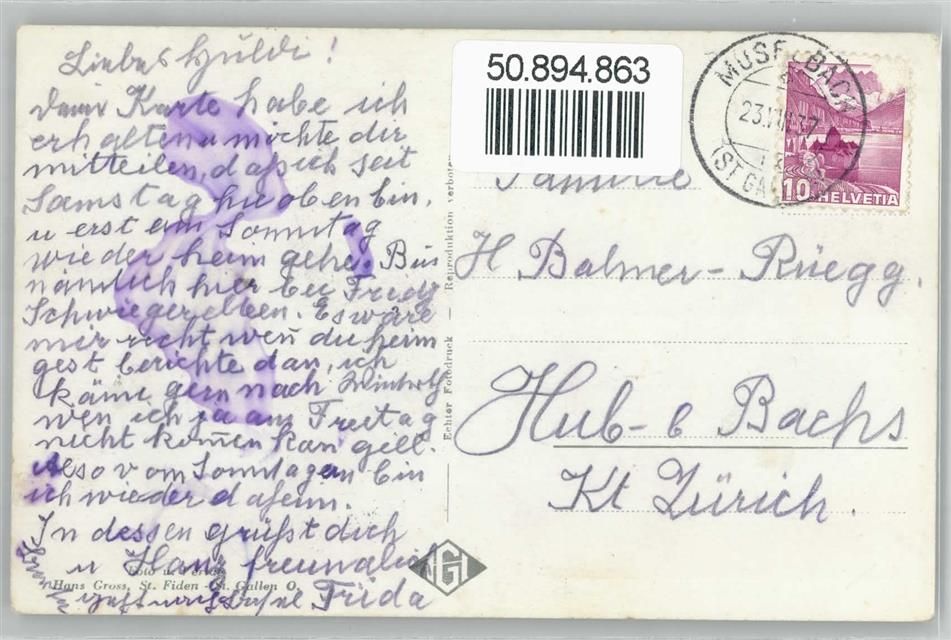 Liebes Huldi!
deine Karte habe ich
erhalten u möchte dir
mitteilen, daß ich seit
Samstag hie oben bin,
u erst am Sonntag
wieder heim gehe. Bin
nämlich hier bei Frieds
Schwigerelteen. Es wäre
mir recht wen du heim
gest berichte dan, ich
käme gern nach
wen ich ja am Freitag
nicht komen kan gelt.
Also vom Sonntag an bin
ich wieder daheim.
In dessen grüßt dich
u Hans freundlich
Frida
Foto u.
Hans Gross, St. Fiden - St. Gallen O.
NGI
Echter Fotodruck - Reproduktion verboten
50.894.863
MUSELBACH
23.
37
(ST GA
10 HELVETIA
Familie
H Balmer-Rüegg.
Hub-b Bachs
Kt Zürich.